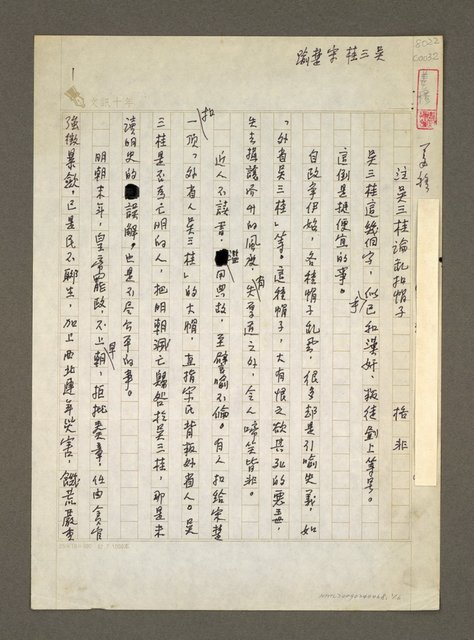 8022
C0032
吳三桂 宋楚瑜
文訊十年
吳三桂論亂扣帽子　格非
吳三桂這幾個字，似已和漢奸、叛徒劃上等號。
這倒是挺便宜的事。
自政爭伊始，各種帽子亂飛，很多都是引喻失義，如
「外省吳三桂」等。這種帽子，大有恨之欲其死的惡毒，
失去揖讓而升的風度，有失厚道之外，令人啼笑皆非。
近人不讀書，濫用典故，至譬喻不倫。有人扣給宋楚
一頂「外省人吳三桂」的大帽，直指宋氏背叛外省人。吳
三桂是否為亡明的人，把明朝淪亡歸咎於吳三桂，那是未
讀明史的誤解，也是不盡公平的事。
明朝末年，皇帝罷政，不上早朝，拒批奏章，任由貪官
強徵暴歛，已是民不聊生，加上西北連年災害 饑荒嚴重